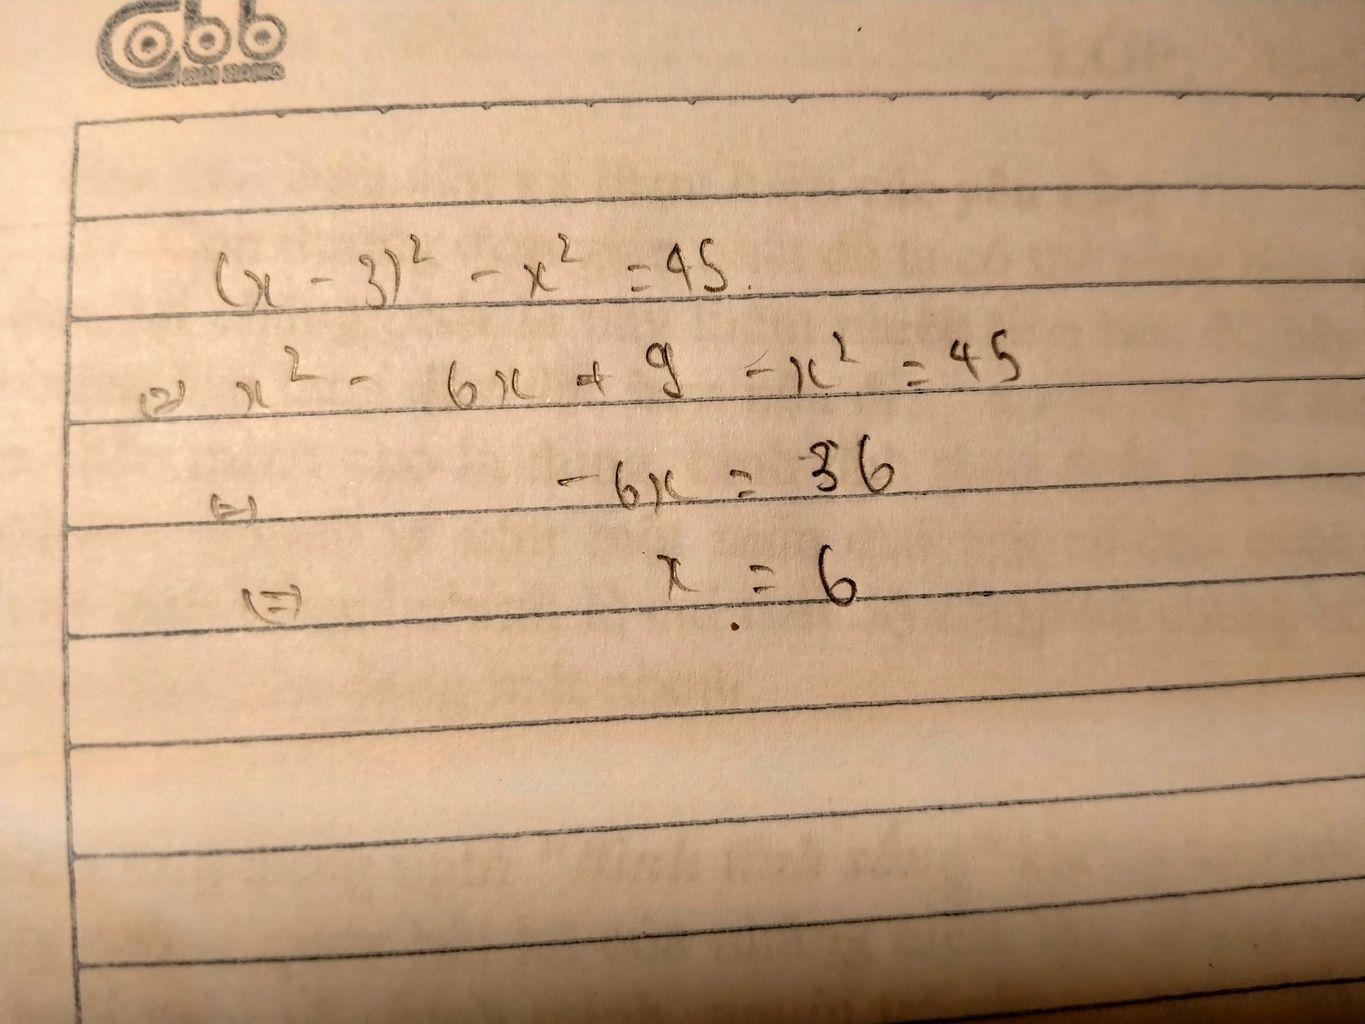 Cobb
(x - 3)² - x² = 45.
⇔ x² - 6x + 9 - x² = 45
⇔ -6x = 36
⇔ x = 6